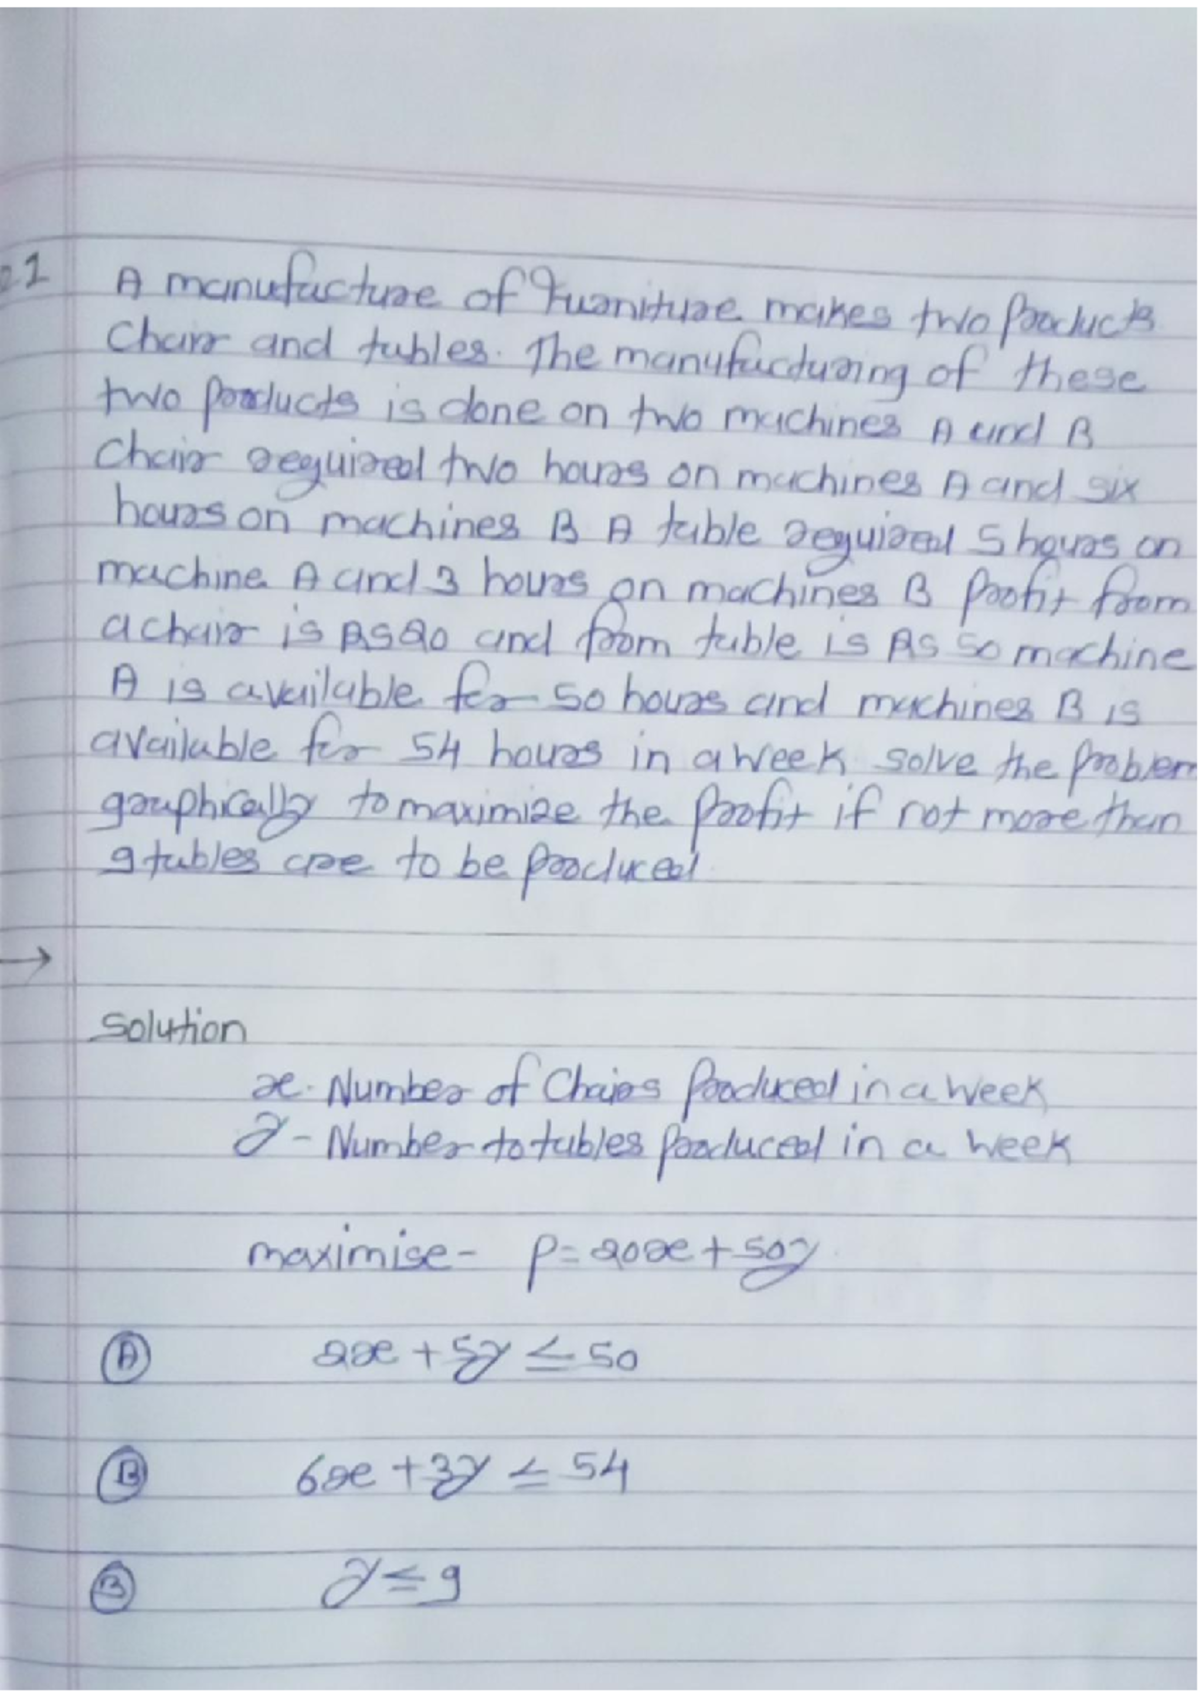 21 A manufacture of Furniture makes two Products
Chair and tables. The manufacturing of these
two Products is done on two machines A and B
Chair required two hours on machines A and six
hours on machines B A table required 5 hours on
machine A and 3 hours on machines B Profit from
a chair is RS 20 and from table is RS 50 machine
A is available for 50 hours and machines B is
available for 54 hours in a week solve the Problem
graphically to maximize the Profit if not more than
9 tables are to be Produced.
→
Solution
x - Number of Chairs Produced in a week
y - Number to tables Produced in a week
maximise - P = 20x + 50y
Ⓐ 2x + 5y ≤ 50
Ⓑ 6x + 3y ≤ 54
Ⓑ y ≤ 9